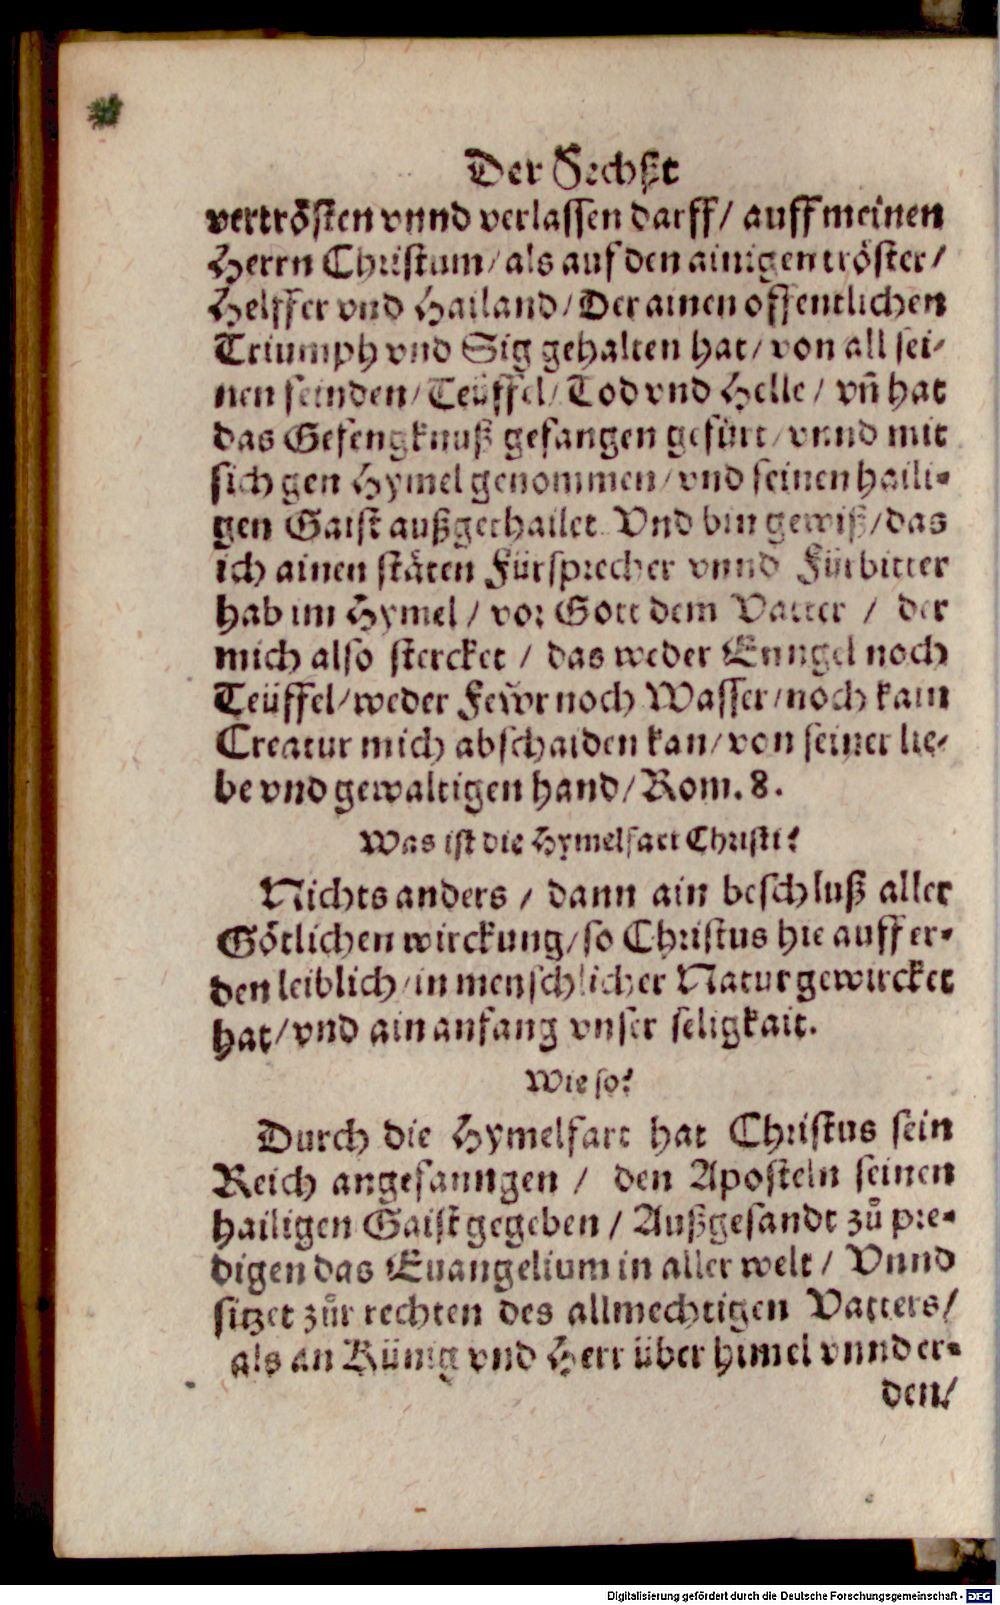 Der Sechßt
vertrösten vnnd verlassen darff/ auff meinen
Herrn Christum/ als auf den ainigen tröster/
Helffer vnd Hailand/ Der ainen offentlichen
Triumph vnd Sig gehalten hat/ von all sei-
nen feinden/ Teüffel/ Tod vnd Helle/ vñ hat
das Gefengknuß gefangen gefürt/ vnnd mit
sich gen Hymel genommen/ vnd seinen haili-
gen Gaist außgethailet. Vnd bin gewiß/ das
ich ainen stäten Fürsprecher vnnd Fürbitter
hab im Hymel/ vor Gott dem Vatter / der
mich also stercket / das weder Enngel noch
Teüffel/ weder Fewr noch Wasser/ noch kain
Creatur mich abschaiden kan/ von seiner lie-
be vnd gewaltigen hand/ Rom. 8.
Was ist die Hymelfart Christi?
Nichts anders / dann ain beschluß aller
Götlichen wirckung/ so Christus hie auff er-
den leiblich/ in menschlicher Natur gewircket
hat/ vnd ain anfang vnser seligkait.
Wie so?
Durch die Hymelfart hat Christus sein
Reich angefanngen / den Aposteln seinen
hailigen Gaist gegeben / Außgesandt zů pre-
digen das Euangelium in aller welt / Vnnd
sitzet zůr rechten des allmechtigen Vatters/
als an Künig vnd Herr über himel vnnd er-
den/
Digitalisierung gefördert durch die Deutsche Forschungsgemeinschaft - DFG